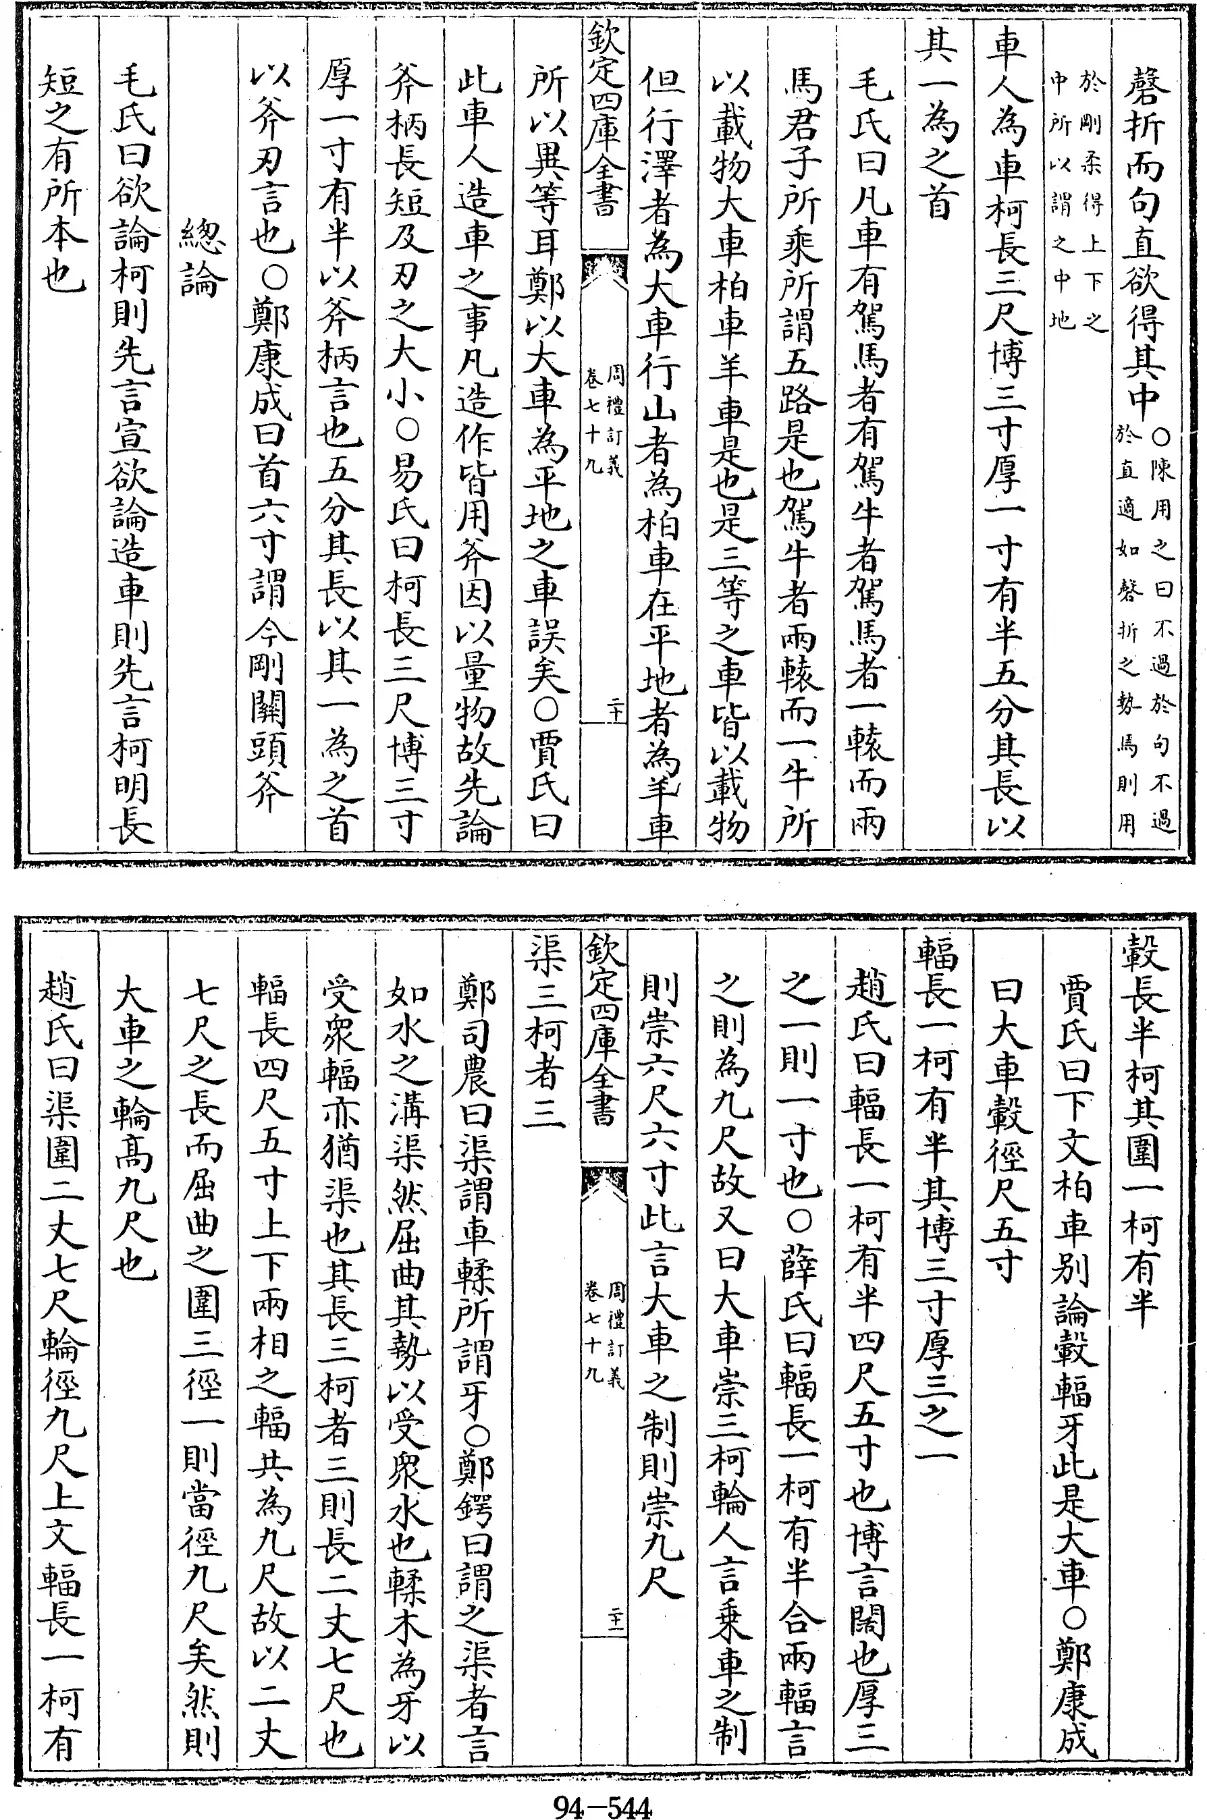 磬折而句直欲得其中〇陳用之曰不過於句不過
於直適如磬折之勢焉則用
於剛柔得上下之
中所以謂之中地
車人為車柯長三尺博三寸厚一寸有半五分其長以
其一為之首
毛氏曰凡車有駕馬者有駕牛者駕馬者一轅而兩
馬君子所乘所謂五路是也駕牛者兩轅而一牛所
以載物大車柏車羊車是也是三等之車皆以載物
但行澤者為大車行山者為柏車在平地者為羊車
欽定四庫全書
周禮訂義
卷七十九
二十
所以異等耳鄭以大車為平地之車誤矣〇賈氏曰
此車人造車之事凡造作皆用斧因以量物故先論
斧柄長短及刃之大小〇易氏曰柯長三尺博三寸
厚一寸有半以斧柄言也五分其長以其一為之首
以斧刃言也〇鄭康成曰首六寸謂今剛關頭斧
總論
毛氏曰欲論柯則先言宣欲論造車則先言柯明長
短之有所本也
轂長半柯其圍一柯有半
賈氏曰下文柏車別論轂輻牙此是大車〇鄭康成
曰大車轂徑尺五寸
輻長一柯有半其博三寸厚三之一
趙氏曰輻長一柯有半四尺五寸也博言闊也厚三
之一則一寸也〇薛氏曰輻長一柯有半合兩輻言
之則為九尺故又曰大車崇三柯輪人言乘車之制
則崇六尺六寸此言大車之制則崇九尺
欽定四庫全書
周禮訂義
卷七十九
二十一
渠三柯者三
鄭司農曰渠謂車輮所謂牙〇鄭鍔曰謂之渠者言
如水之溝渠然屈曲其勢以受衆水也輮木為牙以
受衆輻亦猶渠也其長三柯者三則長二丈七尺也
輻長四尺五寸上下兩相之輻共為九尺故以二丈
七尺之長而屈曲之圍三徑一則當徑九尺矣然則
大車之輪髙九尺也
趙氏曰渠圍二丈七尺輪徑九尺上文輻長一柯有
94-544